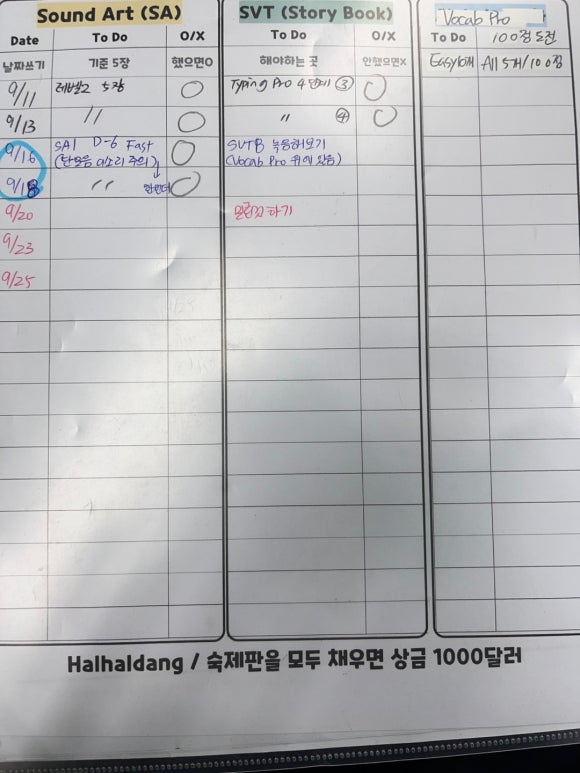 Sound Art (SA)
SVT (Story Book)
Vocab Pro
Date
To Do
O/X
To Do
O/X
To Do
100점 도전
날짜쓰기
기준 5장
했으면O
해야하는 곳
안했으면X
Easy 10개
All 5개/100점
9/11
레벨2 5장
O
Typing Pro 4단계 ③
O
9/13
〃
O
〃 ④
O
9/16
SAI D-6 Fast
(단모음 a소리 주의)
O
SVTB 녹음해오기
(Vocab Pro 뒤에 있음)
9/18
〃
O
9/20
밀린것 하기
9/23
9/25
Halhaldang / 숙제판을 모두 채우면 상금 1000달러